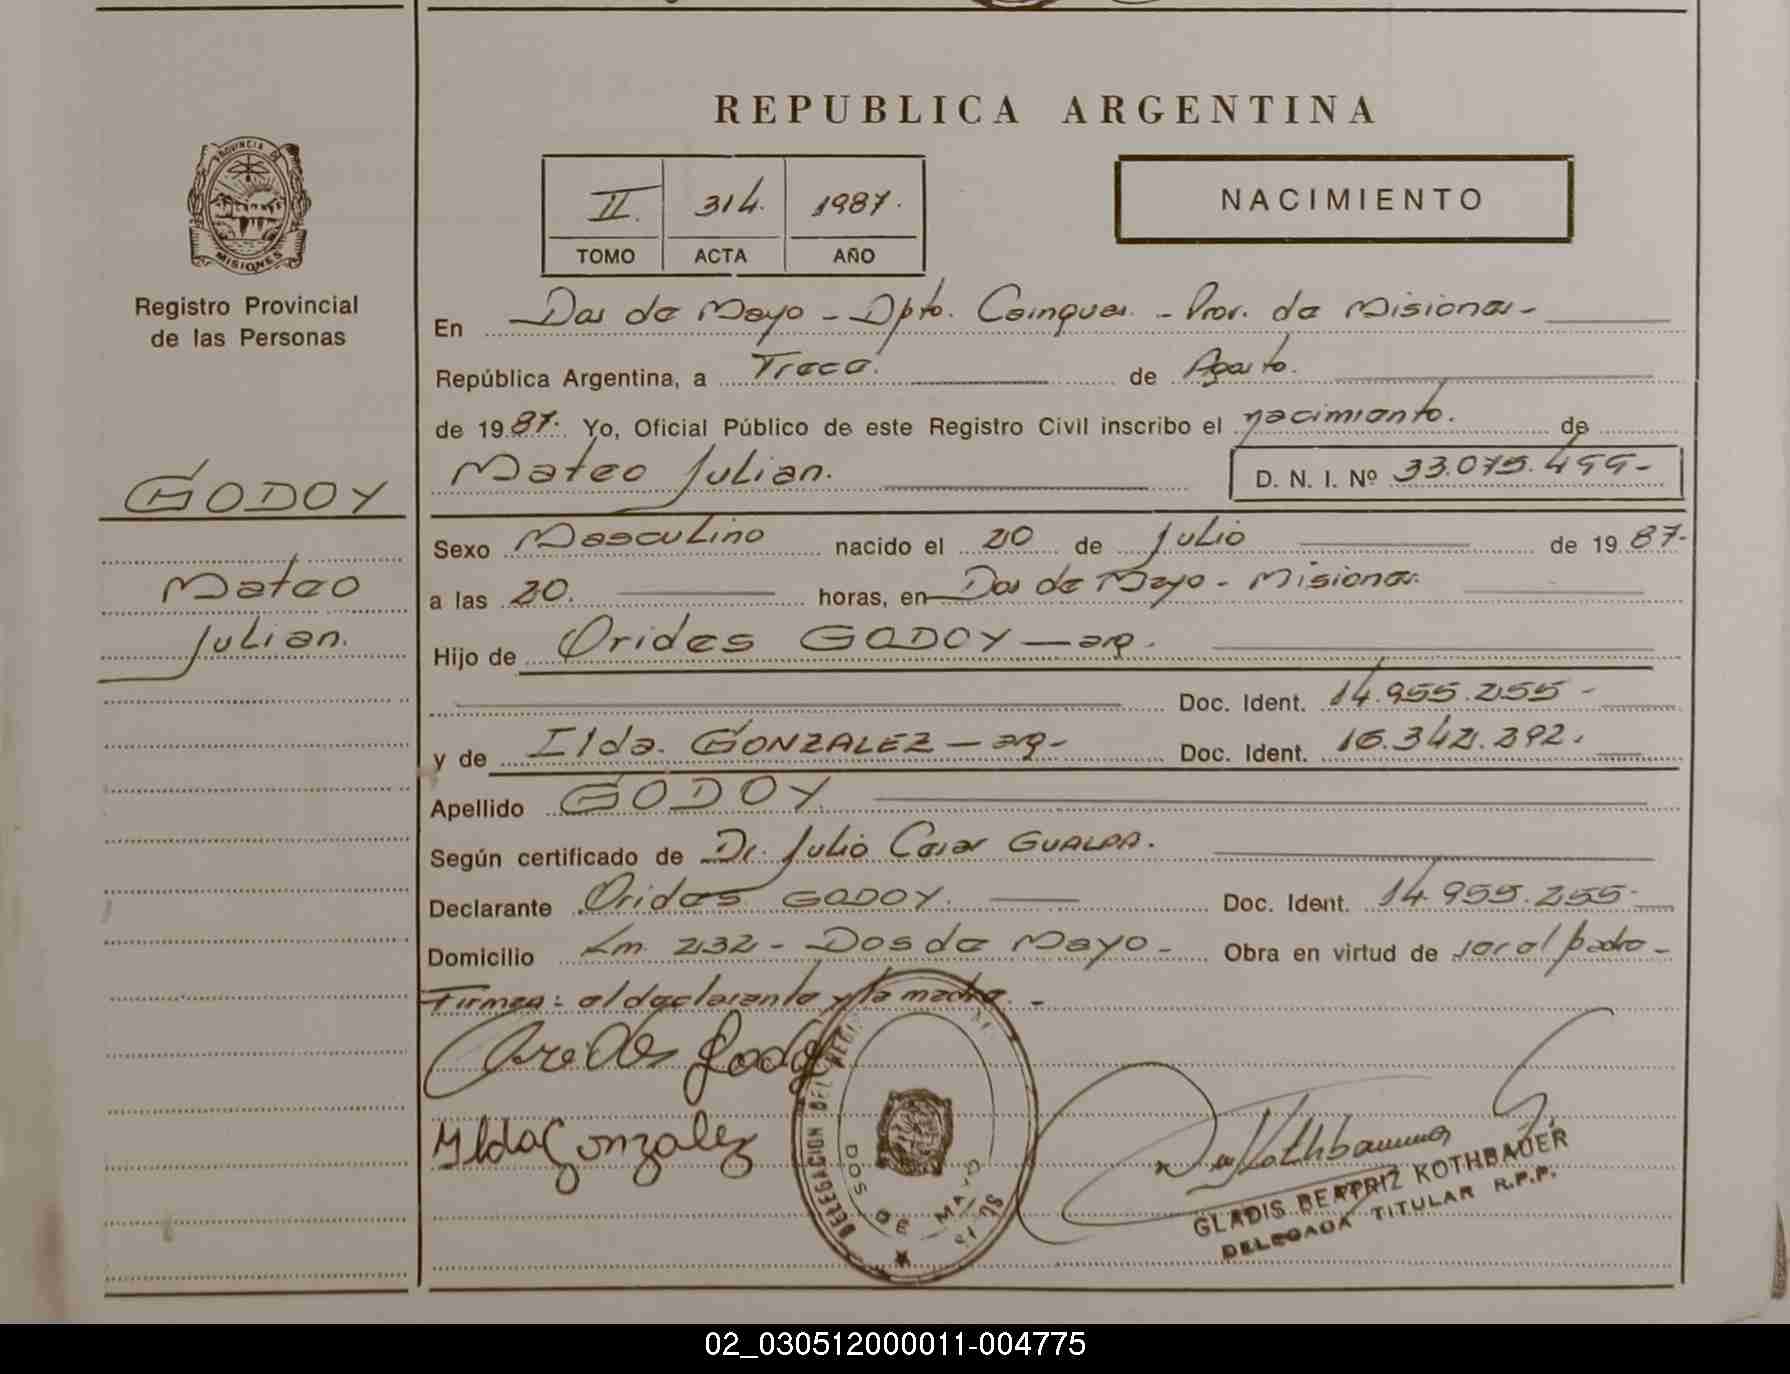 REPUBLICA ARGENTINA
PROVINCIA DE
MISIONES
Registro Provincial
de las Personas
II. 314. 1987.
TOMO ACTA AÑO
NACIMIENTO
En Dos de Mayo - Dpto. Cainguas. - Prov. de Misiones -
República Argentina, a Trece. de Agosto.
de 1987. Yo, Oficial Público de este Registro Civil inscribo el nacimiento. de
Mateo Julian. D. N. I. Nº 33.075.499-
GODOY
Mateo
Julian.
Sexo Masculino nacido el 20 de Julio de 1987-
a las 20. horas, en Dos de Mayo - Misiones.
Hijo de Orides GODOY - arg.
Doc. Ident. 14.955.255 -
y de Ilda. GONZALEZ - arg - Doc. Ident. 16.342.292.
Apellido GODOY
Según certificado de Dr. Julio Cesar GUALDA.
Declarante Orides GODOY. Doc. Ident. 14.955.255-
Domicilio Km. 232 - Dos de Mayo - Obra en virtud de ser el padre -
Firman: el declarante y la madre. -
Orides Godoy
Ilda Gonzalez
DELEGACION DEL REGI
DOS DE MAYO
GLADIS BEATRIZ KOTHBAUER
DELEGADA TITULAR R.P.P.
02_030512000011-004775